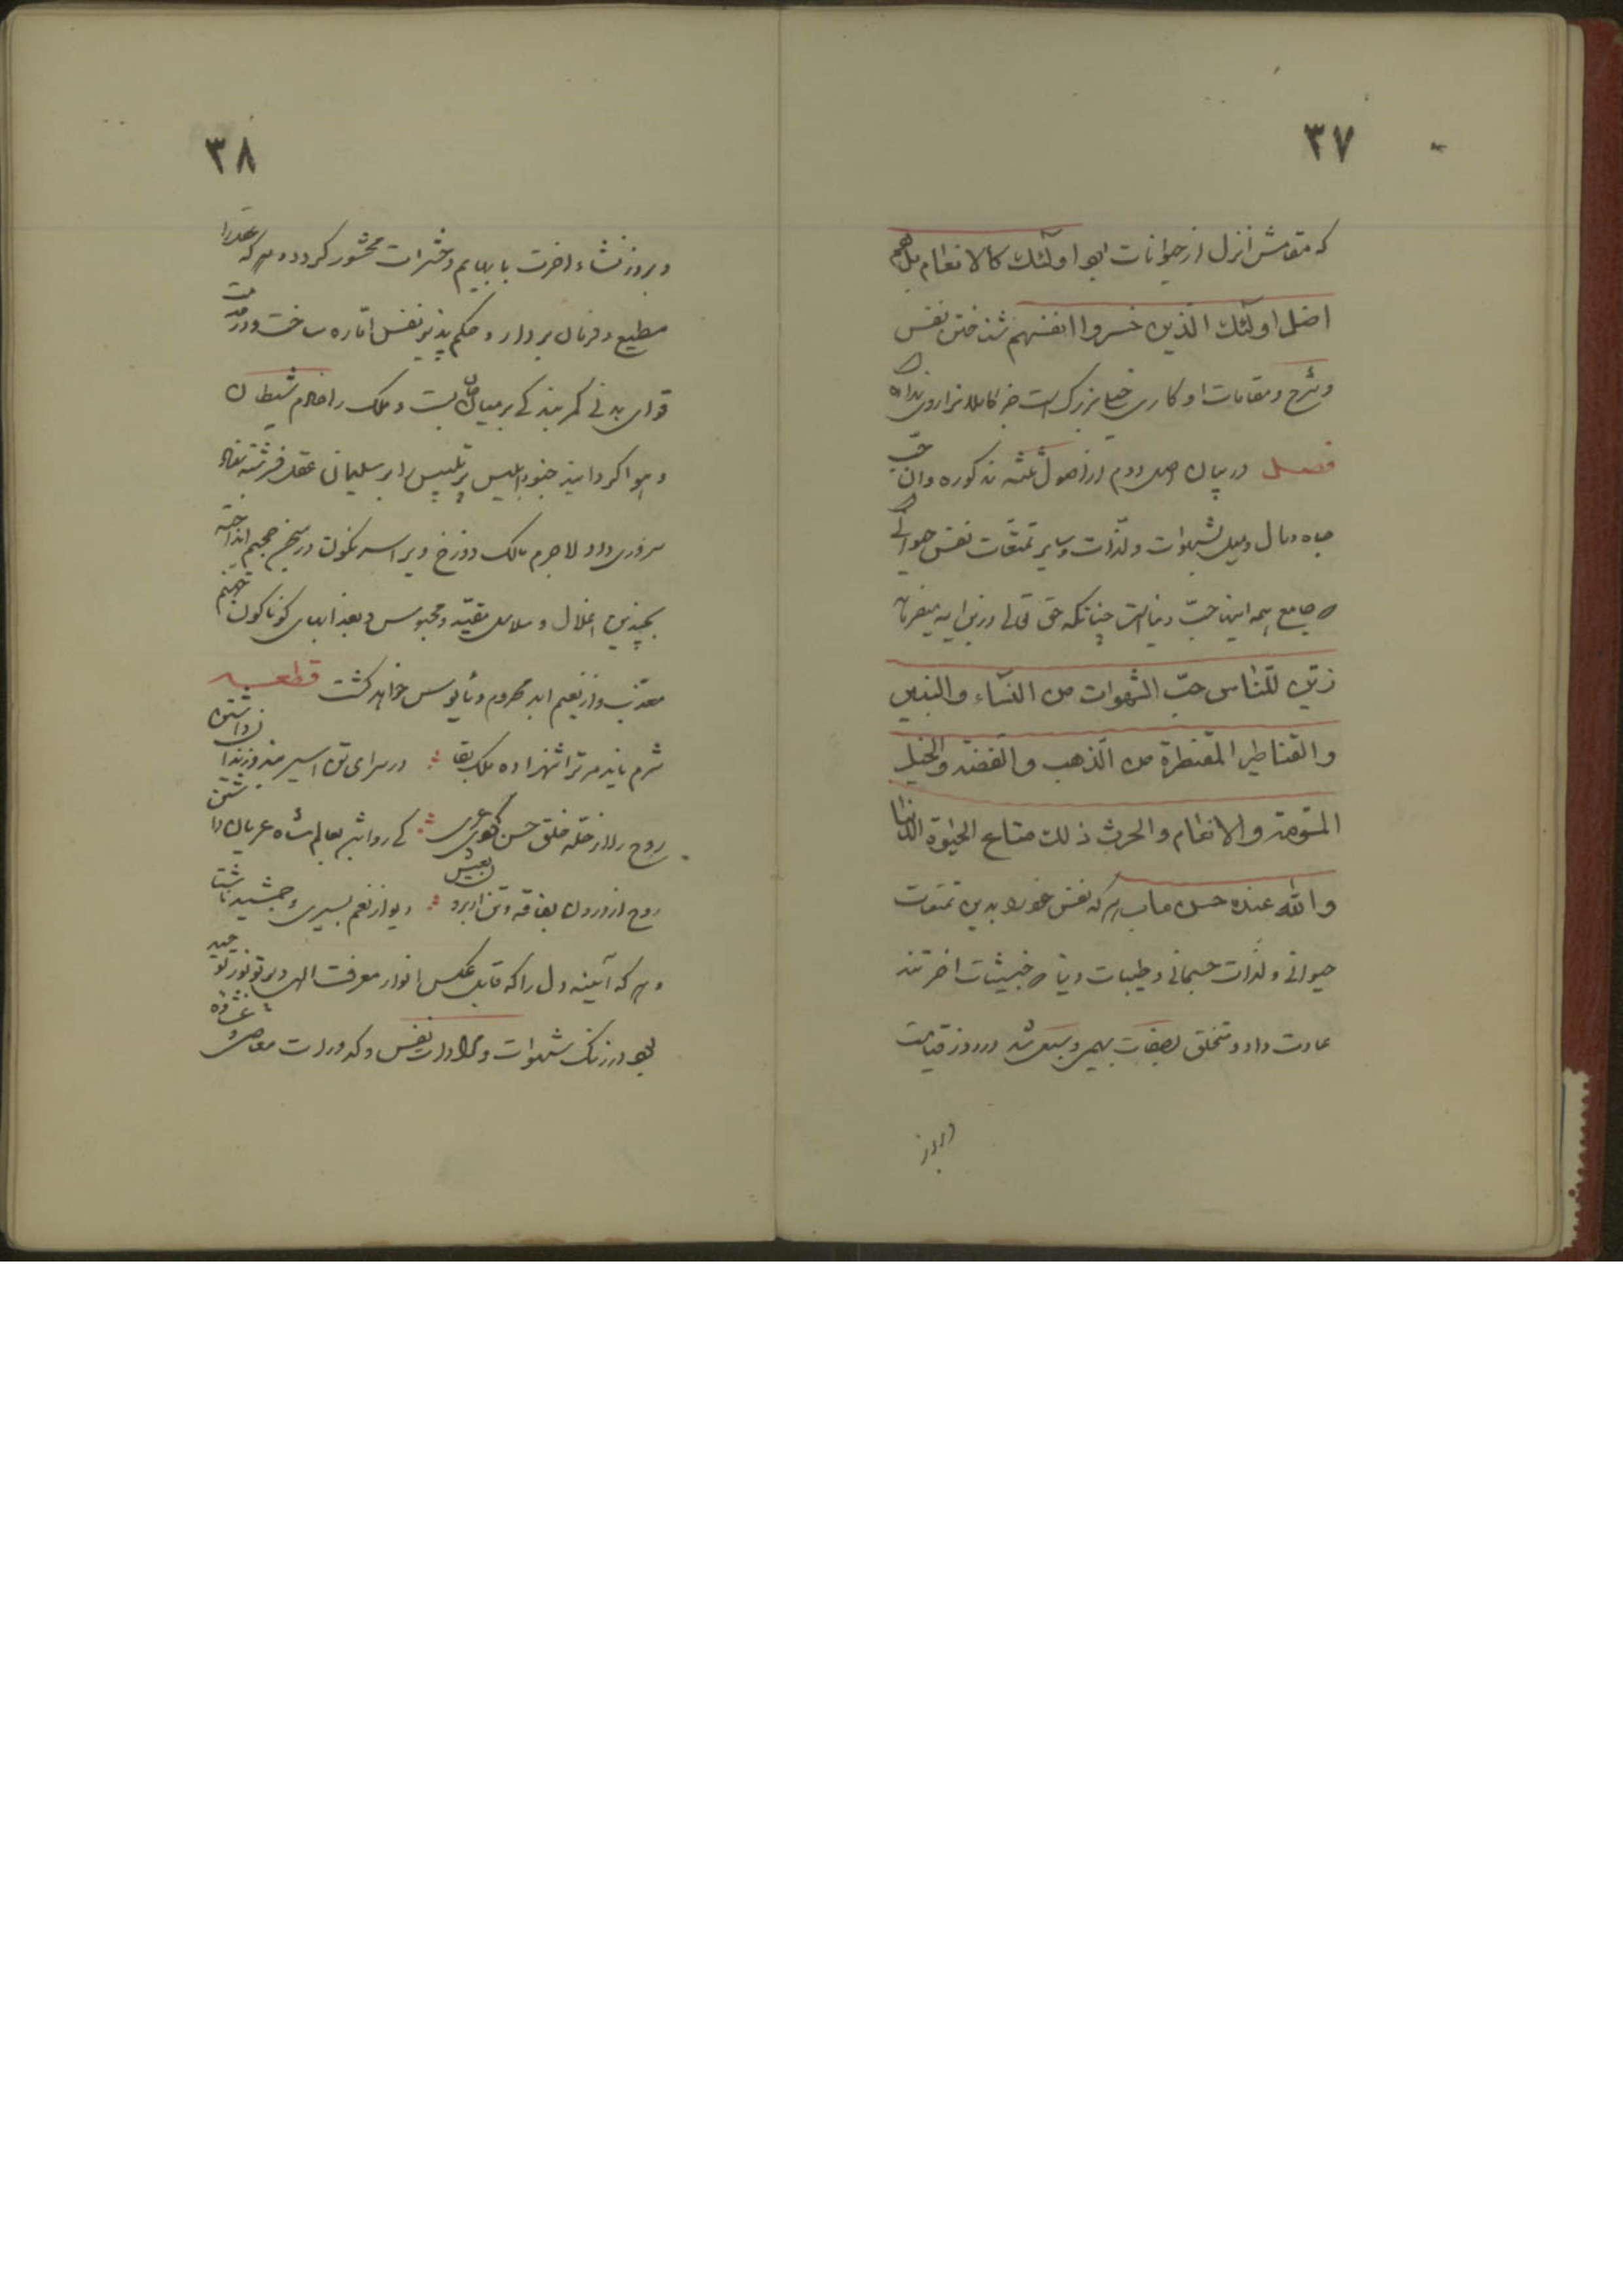 ۳۷
که مقامش انزل از حیوانات بود اولئک کالانعام بل هم
اضل اولئک الذین خسروا انفسهم شناختن نفس
و شرح و مقامات او کاری بزرگ است جز کاملان را روی نداده
فصل در بیان اصل دوم از اصول ثلثه مذکوره و آن حب
جاه و مال و میل بشهوات و لذات و سایر تمتعات نفس حیوانی
که جامع همه اینها حبّ دنیا است چنانکه حق تعالی در این آیه میفرماید
زیّن للنّاس حبّ الشهوات من النّساء والبنین
والقناطیر المقنطرة من الذهب والفضّة والخیل
المسوّمة والانعام والحرث ذلک متاع الحیوة الدنیا
والله عنده حسن ماب هر که نفس خود را بدین تمتعات
حیوانی و لذات جسمانی و طیبات دنیا که خبیثات اخرتند
عادت داد و متخلق بصفات بهیمی و سبعی شد در روز قیامت
و بروز
۳۸
و بروز نشاء اخرت با بهایم و حشرات محشور گردد و هر که عقل را
مطیع و فرمان بردار و حکم پذیر نفس امّاره ساخت و در خدمت
قوای بدنی کمر بندگی بر میان جان بست و ملک را خادم شیطان
و هوا گردانید جنود ابلیس پر تلبیس را بر سلیمان عقل فرشته نهاد
سروری داد لاجرم مالک دوزخ ویرا سرنگون در سجن جحیم انداخته
بچندین اغلال و سلاسل مقیّد و محبوس و بعذابهای گوناگون جهنم
معذّب و از نعیم ابد محروم و مأیوس خواهد گشت قطعه
شرم باید مر ترا شهزاده ملک بقا در سرای تن اسیر بند و زندان داشتن
روح را از حلّه خلق حسن عوری کی روا باشد بعالم شاه عریان داشتن
روح از درون بفاقه و تن از برون بعیش دیو از نعم بسیری و جمشید ناشتا
و هر که آیینه دل را که قابل عکس انوار معرفت الهی و پرتو نور توحید
بود از زنگ شهوات و مرادات نفس و کدورات معاصی و غشاوه